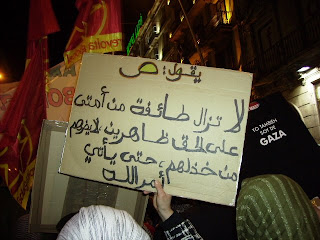 يقول: ص
لا تزال طائفة من أمتي
على الحق ظاهرين لا يضرهم
من خذلهم، حتى يأتي
أمر الله
YO TAMBIÉN
SOY DE
GAZA